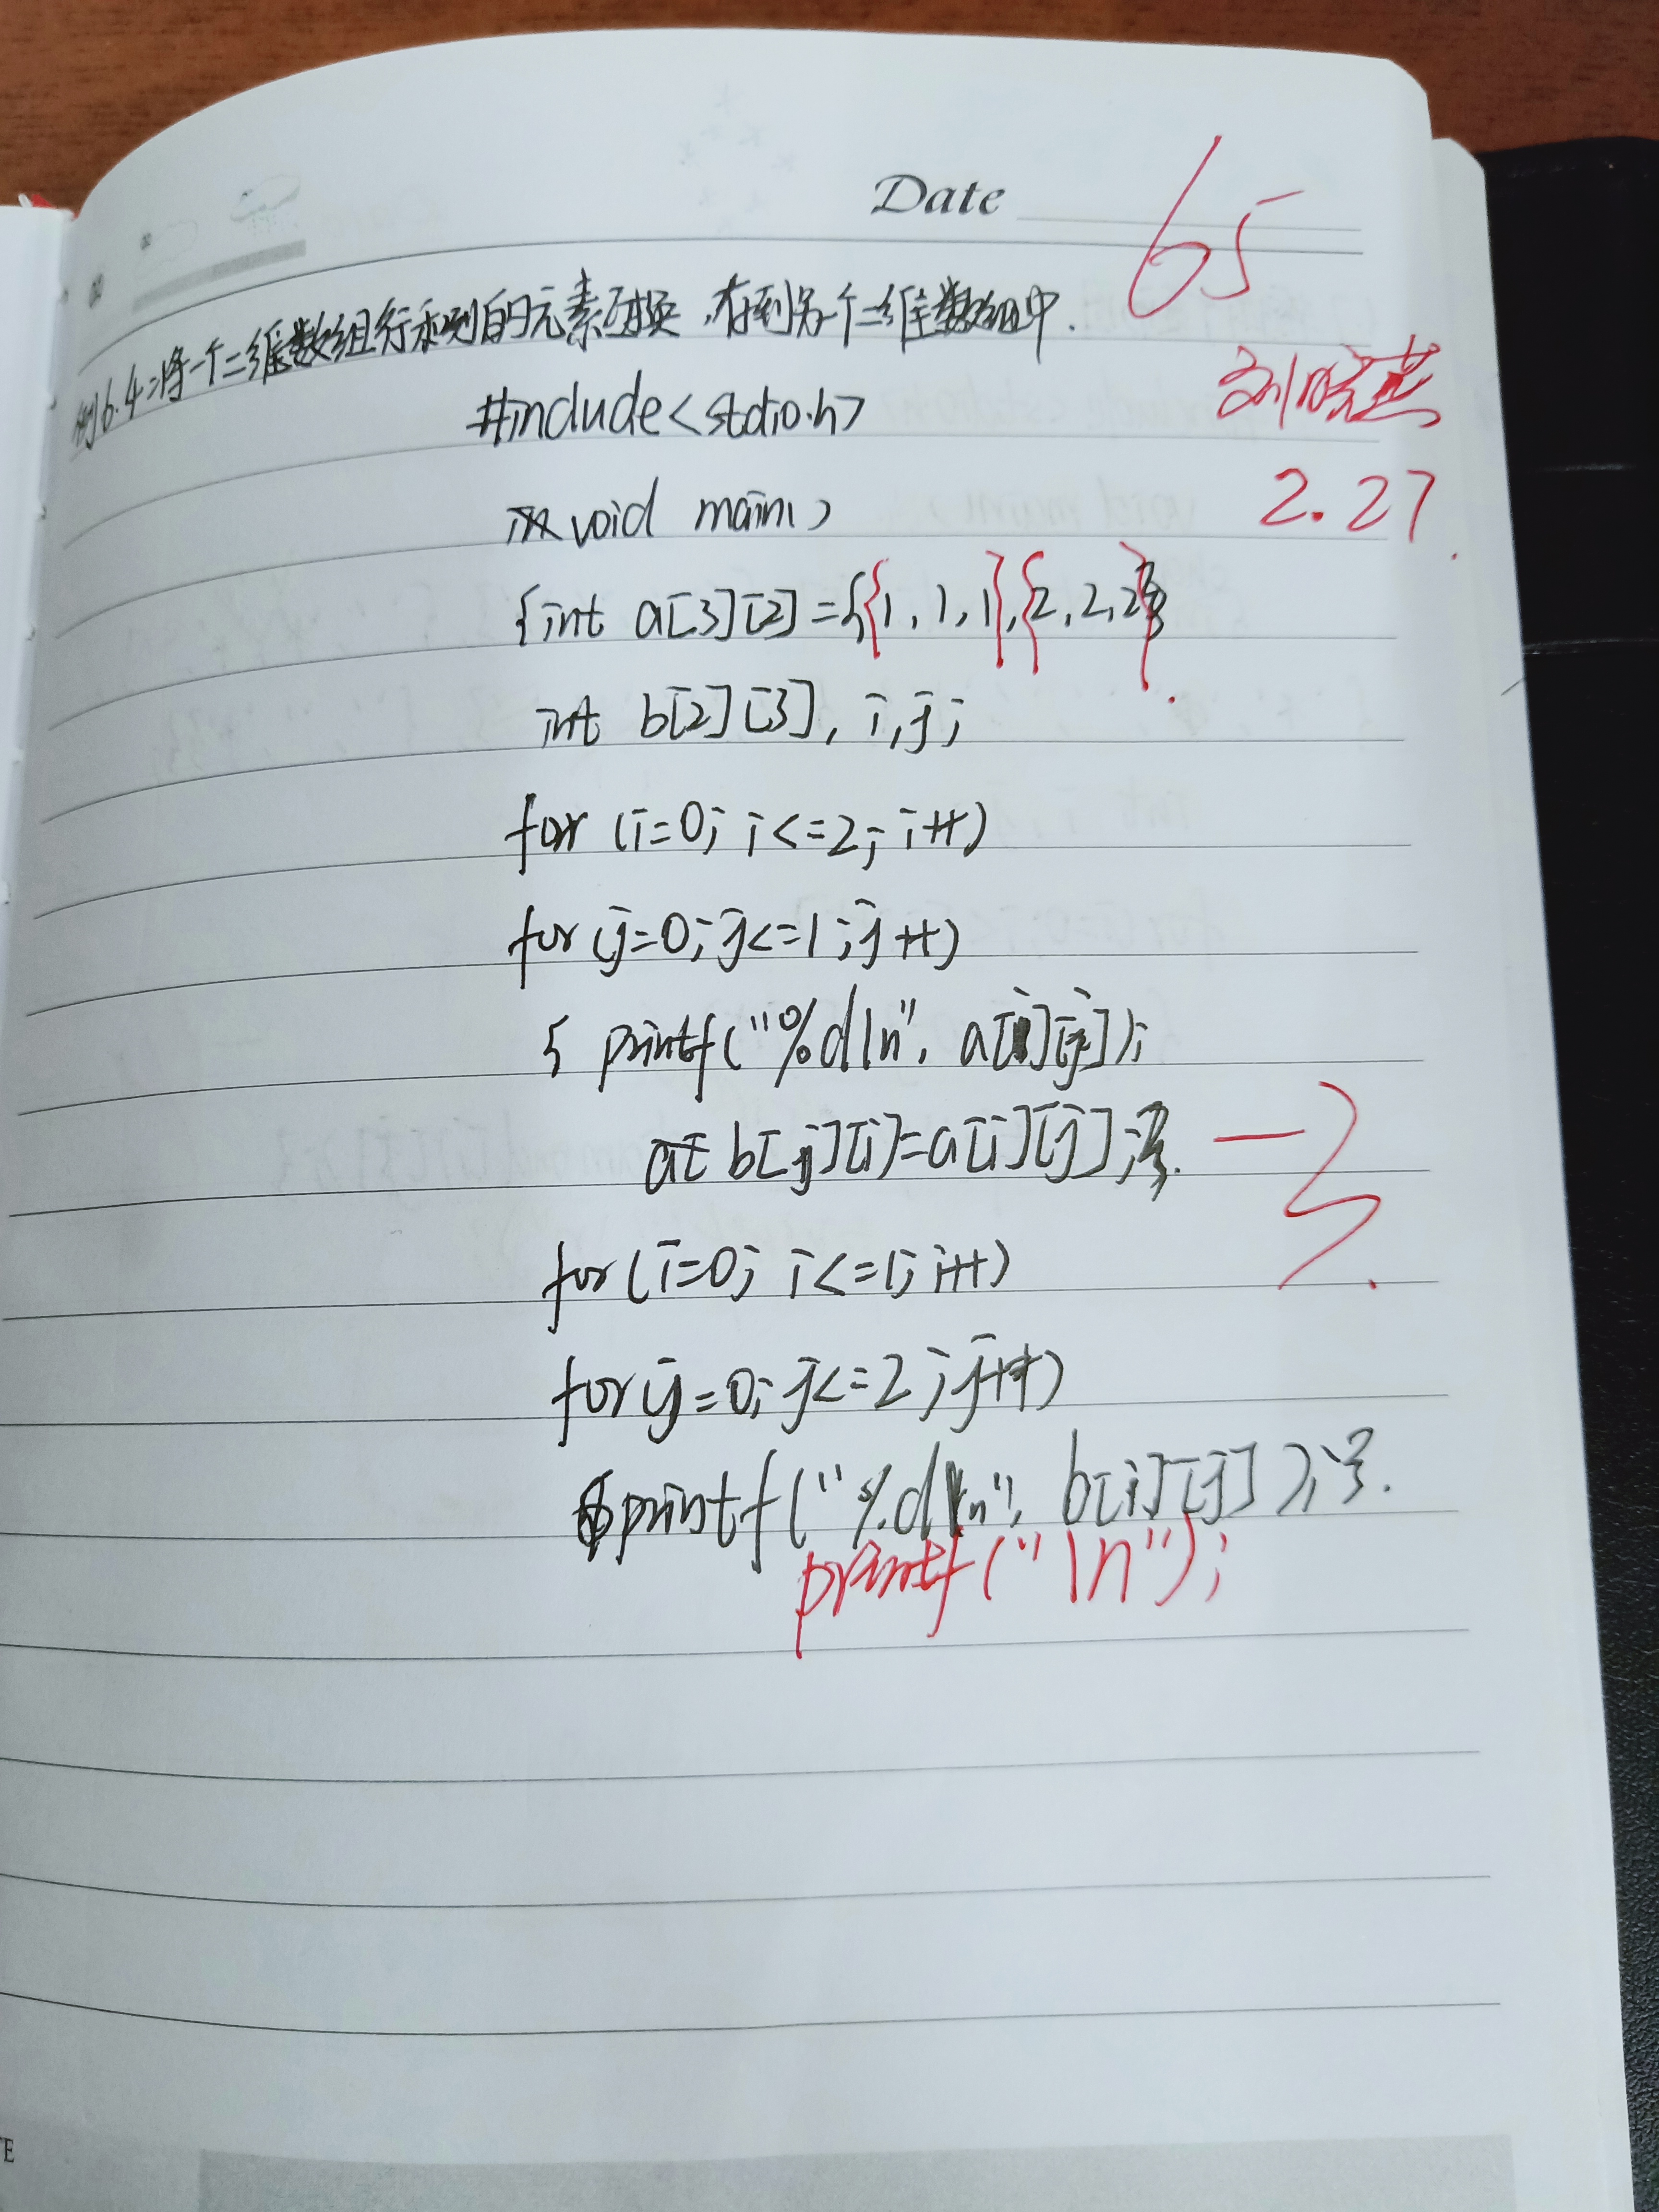 Date
65
例6.4:将一个二维数组行和列的元素互换,存到另个二维数组中.
刘晓燕
#include<stdio.h>
2.27
void main()
{int a[3][2]={{1,1,1},{2,2,2}}
int b[2][3],i,j;
for (i=0; i<=2; i++)
for (j=0; j<=1; j++)
{ printf("%d\n", a[i][j]);
b[j][i]=a[i][j];}
for (i=0; i<=1; i++)
for (j=0; j<=2; j++)
printf("%d\n", b[i][j]);}
printf("\n");
TE